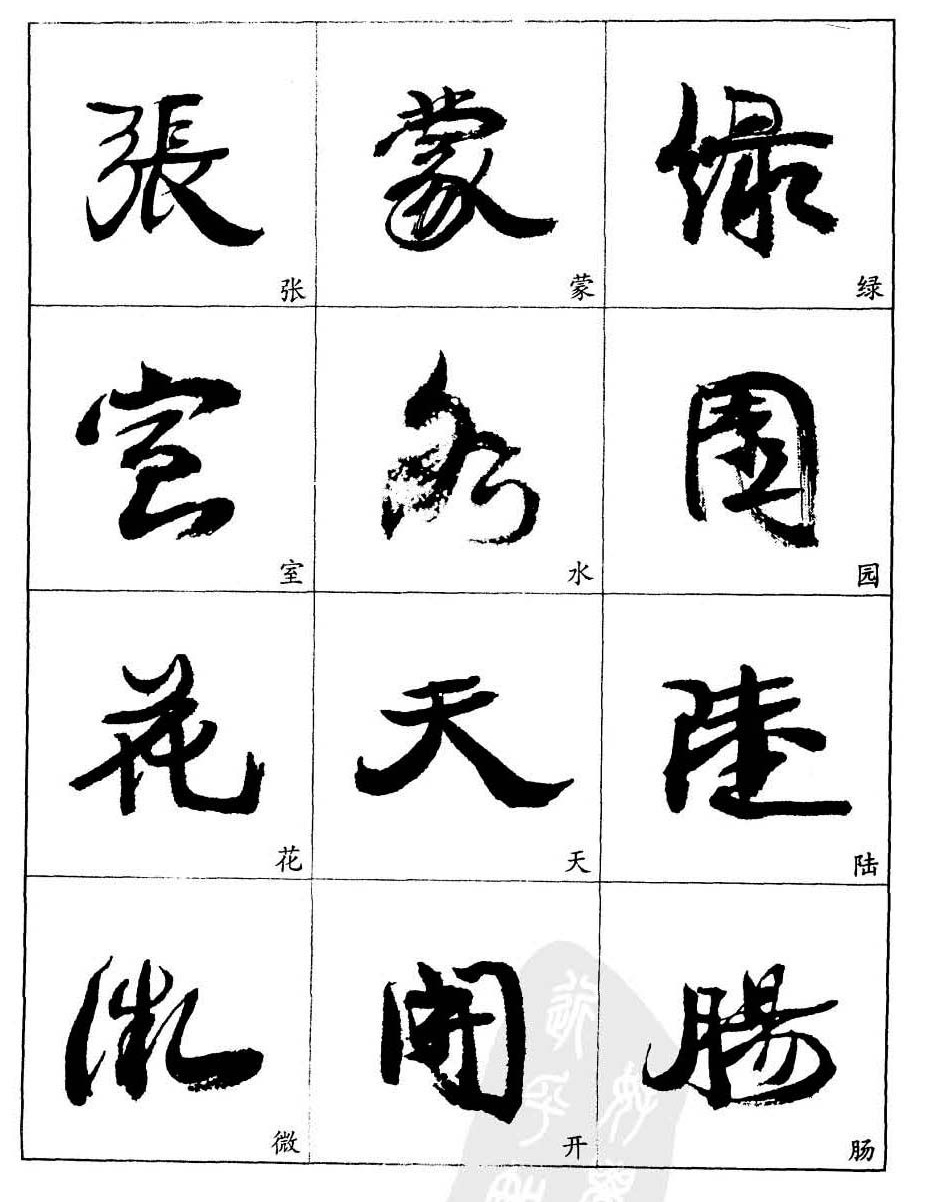 張 蒙 绿
张 蒙 绿
室 水 園
室 水 园
花 天 陸
花 天 陆
微 開 腸
微 开 肠